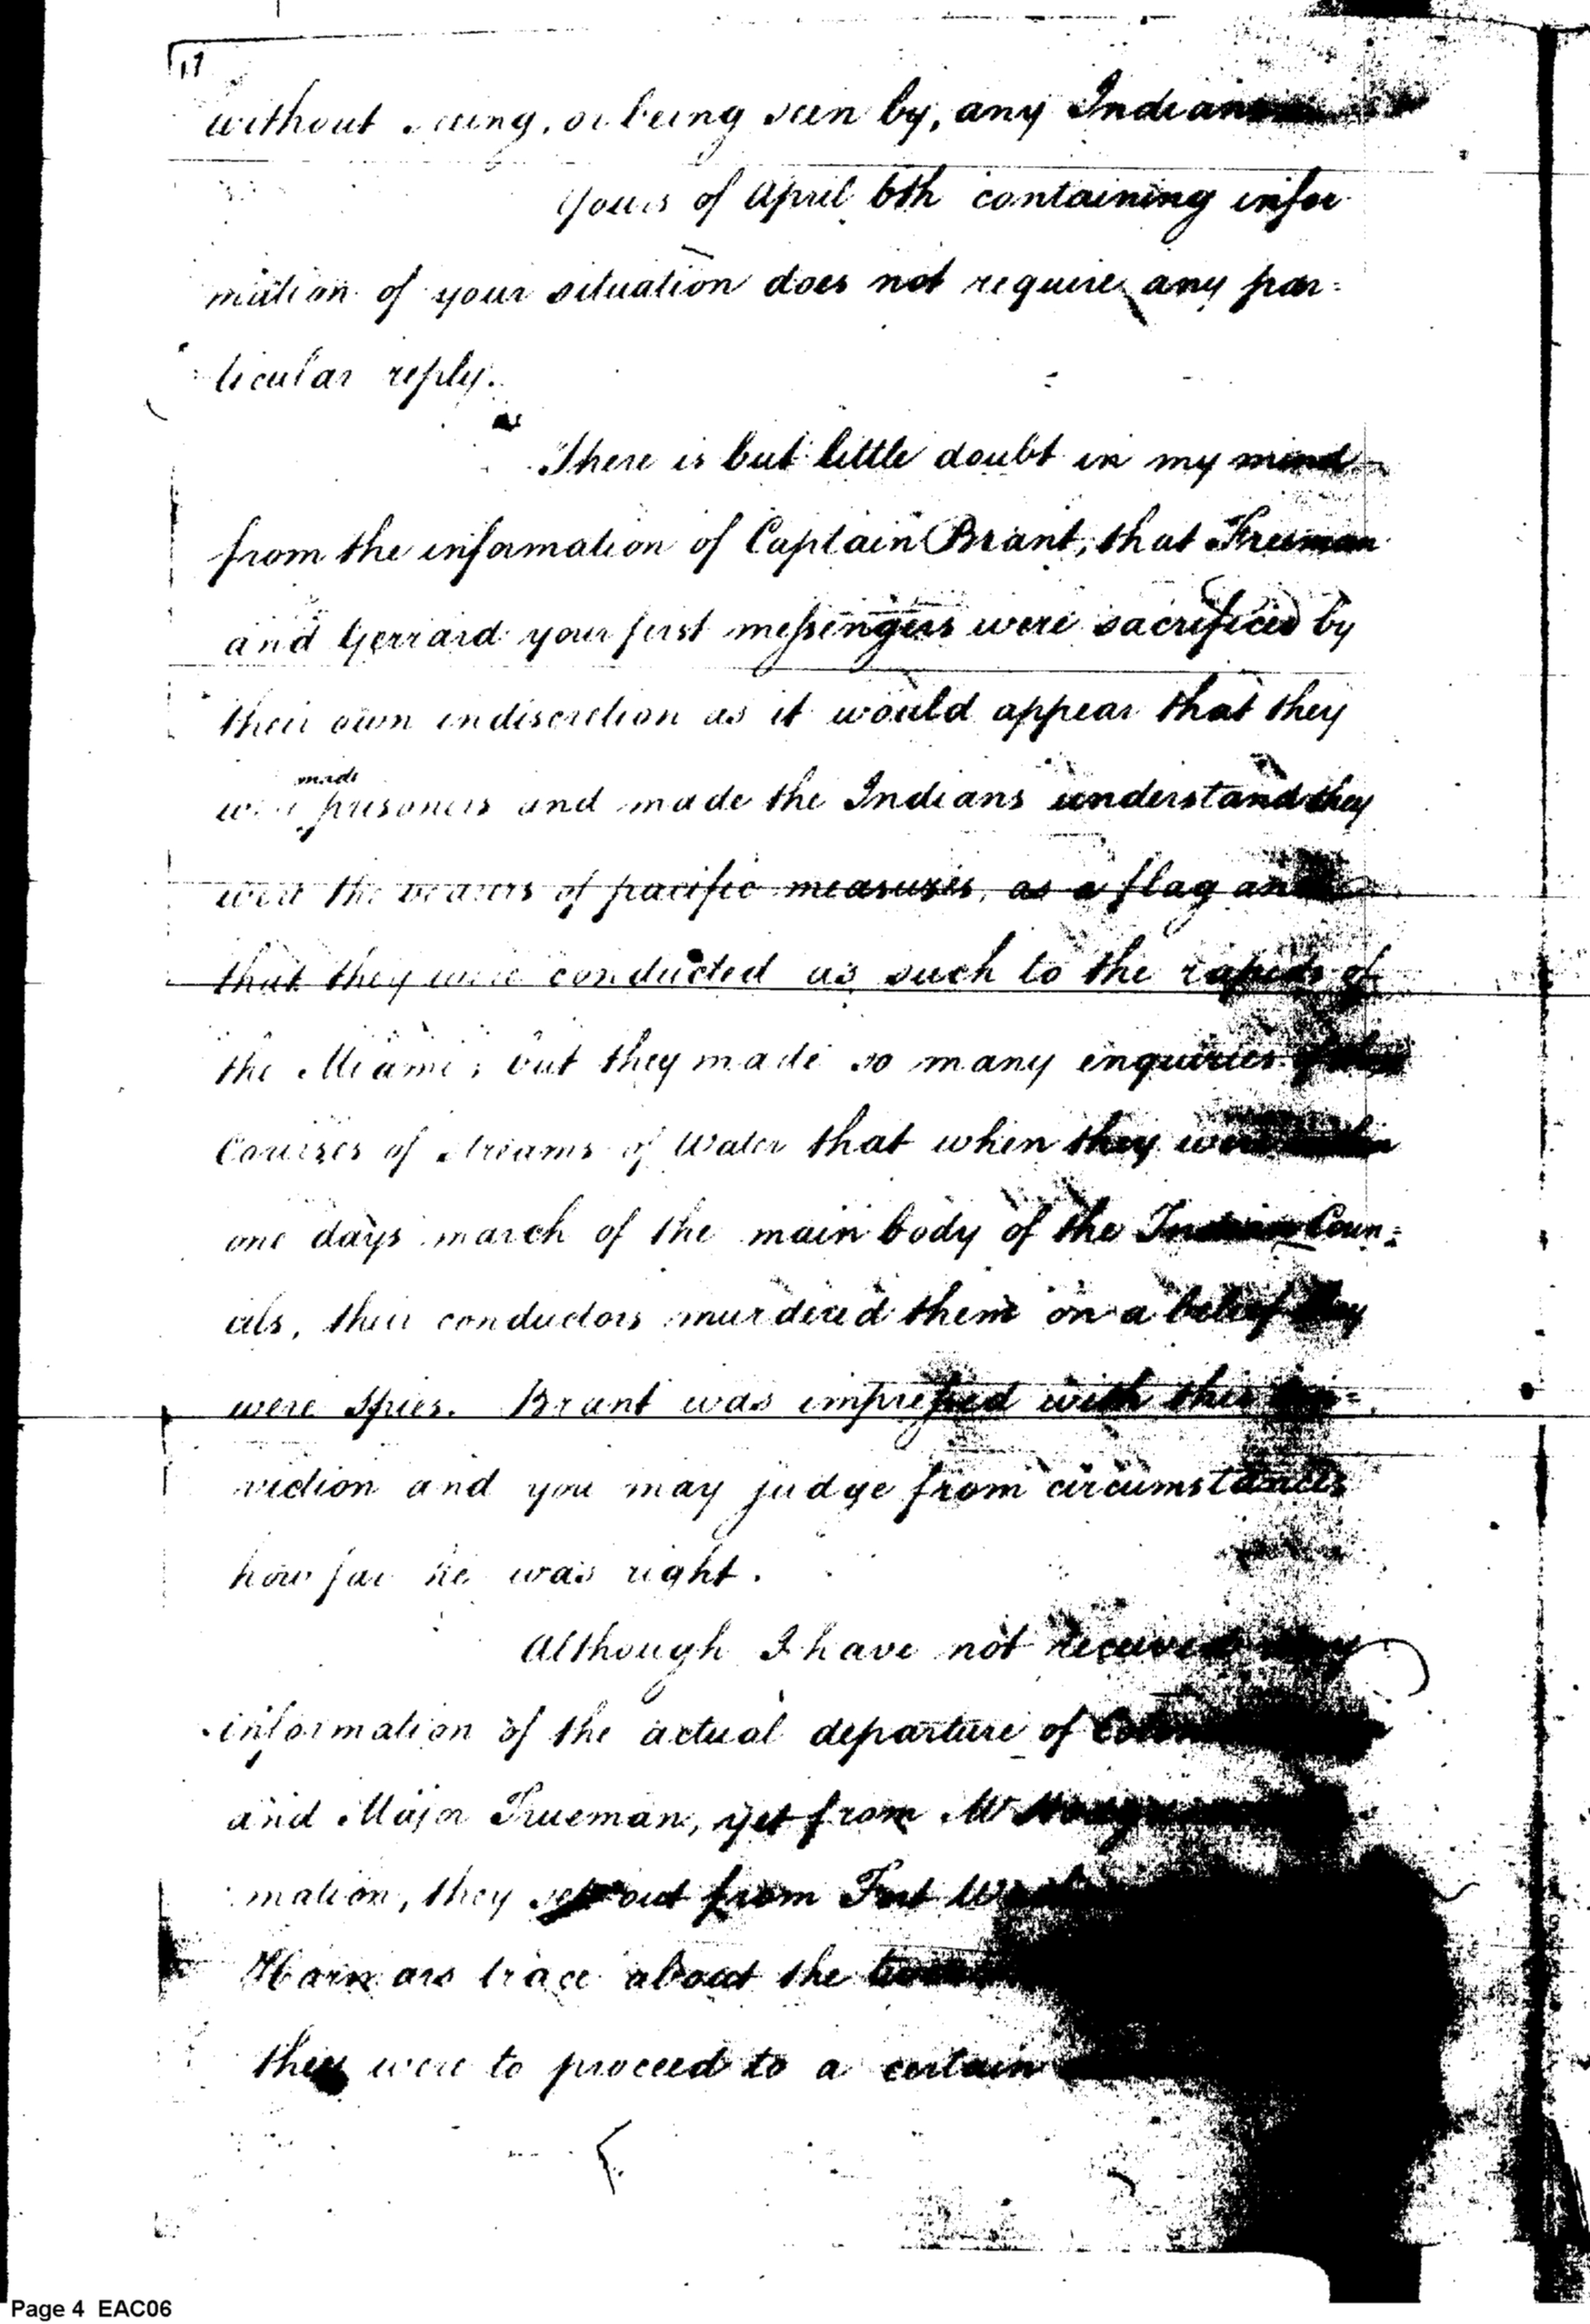 17
without seeing, or being seen by, any Indians
Yours of April 6th containing infor
mation of your situation does not require any par=
ticular reply.
There is but little doubt in my mind
from the information of Captain Brant, that Freeman
and Gerrard your first messengers were sacrificed by
their own indiscretion as it would appear that they
made
were prisoners and made the Indians understand they
were the bearers of pacific measures, as a flag and
that they were conducted as such to the rapids of
the Miami; but they made so many enquiries of the
Courses of streams of Water that when they were within
one days march of the main body of the Indian Coun=
cils, their conductors murdered them on a belief they
were Spies. Brant was impressed with this con=
viction and you may judge from circumstances
how far he was right.
Although I have not received any
information of the actual departure of
and Major Trueman, yet from Mr
mation, they set out from Fort
Harmars trace about the
they were to proceed to a certain
Page 4 EAC06